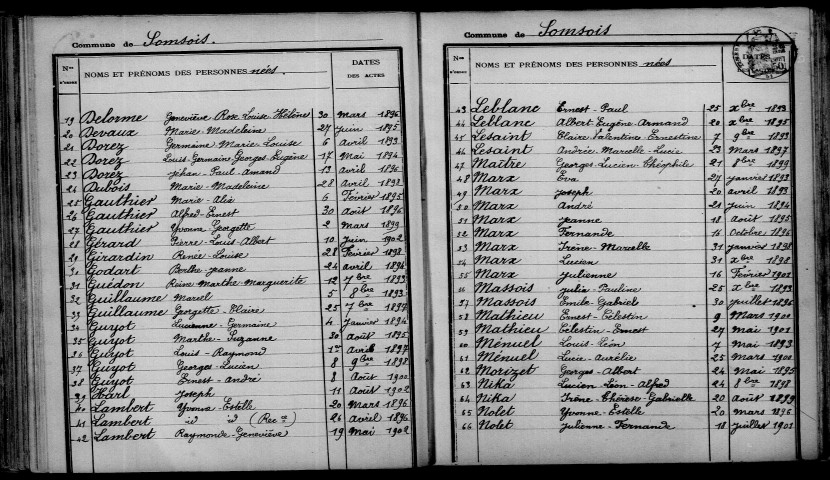 Commune de Somsois.
Nos D'ORDRE NOMS ET PRÉNOMS DES PERSONNES nées. DATES DES ACTES
19 Delorme Geneviève Rose Louise Hélène 30 Mars 1896
20 Devaux Marie-Madeleine 27 Juin 1895
21 Dorez Germaine-Marie-Louise 6 Avril 1893
22 Dorez Louis-Germain Georges Eugène 17 Mai 1894
23 Dorez Jéhan-Paul-Amand 13 Avril 1896
24 Dubois Marie-Madeleine 28 Avril 1898
25 Gauthier Marie-Alix 6 Février 1895
26 Gauthier Alfred-Ernest 30 Août 1896
27 Gauthier Yvonne-Georgette 2 Mars 1899
28 Gérard Pierre-Louis-Albert 10 Juin 1902
29 Girardin Renée-Louise 28 Février 1898
30 Godart Berthe-Jeanne 24 Avril 1894
31 Guédon Reine Marthe Marguerite 12 7bre 1893
32 Guillaume Marcel 5 8bre 1893
33 Guillaume Georgette-Claire 25 7bre 1897
34 Guyot Lucienne-Germaine 4 Janvier 1894
35 Guyot Marthe-Suzanne 30 Août 1895
36 Guyot Louis-Raymond 1er Avril 1897
37 Guyot Georges-Lucien 8 9bre 1898
38 Guyot Ernest-André 8 Août 1900
39 Harl Joseph 11 Août 1902
40 Lambert Yvonne-Estelle 20 Mars 1896
41 Lambert id id (Rec ce) 26 Avril 1896
42 Lambert Raymonde-Geneviève 19 Mai 1902
Commune de Somsois
Nos D'ORDRE NOMS ET PRÉNOMS DES PERSONNES nées DATES
43 Leblanc Ernest-Paul 25 Xbre 1893
44 Leblanc Albert Eugène-Armand 20 Xbre 1895
45 Lesaint Claire Valentine Ernestine 7 9bre 1893
46 Lesaint Andrée-Marcelle-Lucie 23 Mars 1897
47 Maître Georges-Lucien-Théophile 21 8bre 1899
48 Marx Eva 27 Janvier 1893
49 Marx Joseph 20 Avril 1893
50 Marx André 21 Juin 1894
51 Marx Jeanne 18 Août 1895
52 Marx Fernande 16 Octobre 1896
53 Marx Irène-Marcelle 31 Janvier 1898
54 Marx Lucien 31 Xbre 1898
55 Marx Julienne 16 Février 1901
56 Massois Julia-Pauline 25 Xbre 1893
57 Massois Emile-Gabriel 30 Juillet 1896
58 Mathieu Ernest-Célestin 9 Mars 1900
59 Mathieu Célestin-Ernest 27 Mai 1901
60 Ménuel Louis-Léon 7 Mai 1893
61 Ménuel Lucie-Aurélie 25 Mars 1900
62 Morizet Georges-Albert 24 Mai 1895
63 Nika Lucien Léon-Alfred 24 8bre 1898
64 Nika Irène-Thérèse-Gabrielle 20 Août 1899
65 Nolet Yvonne-Estelle 20 Mars 1896
66 Nolet Julienne-Fernande 18 Juillet 1901